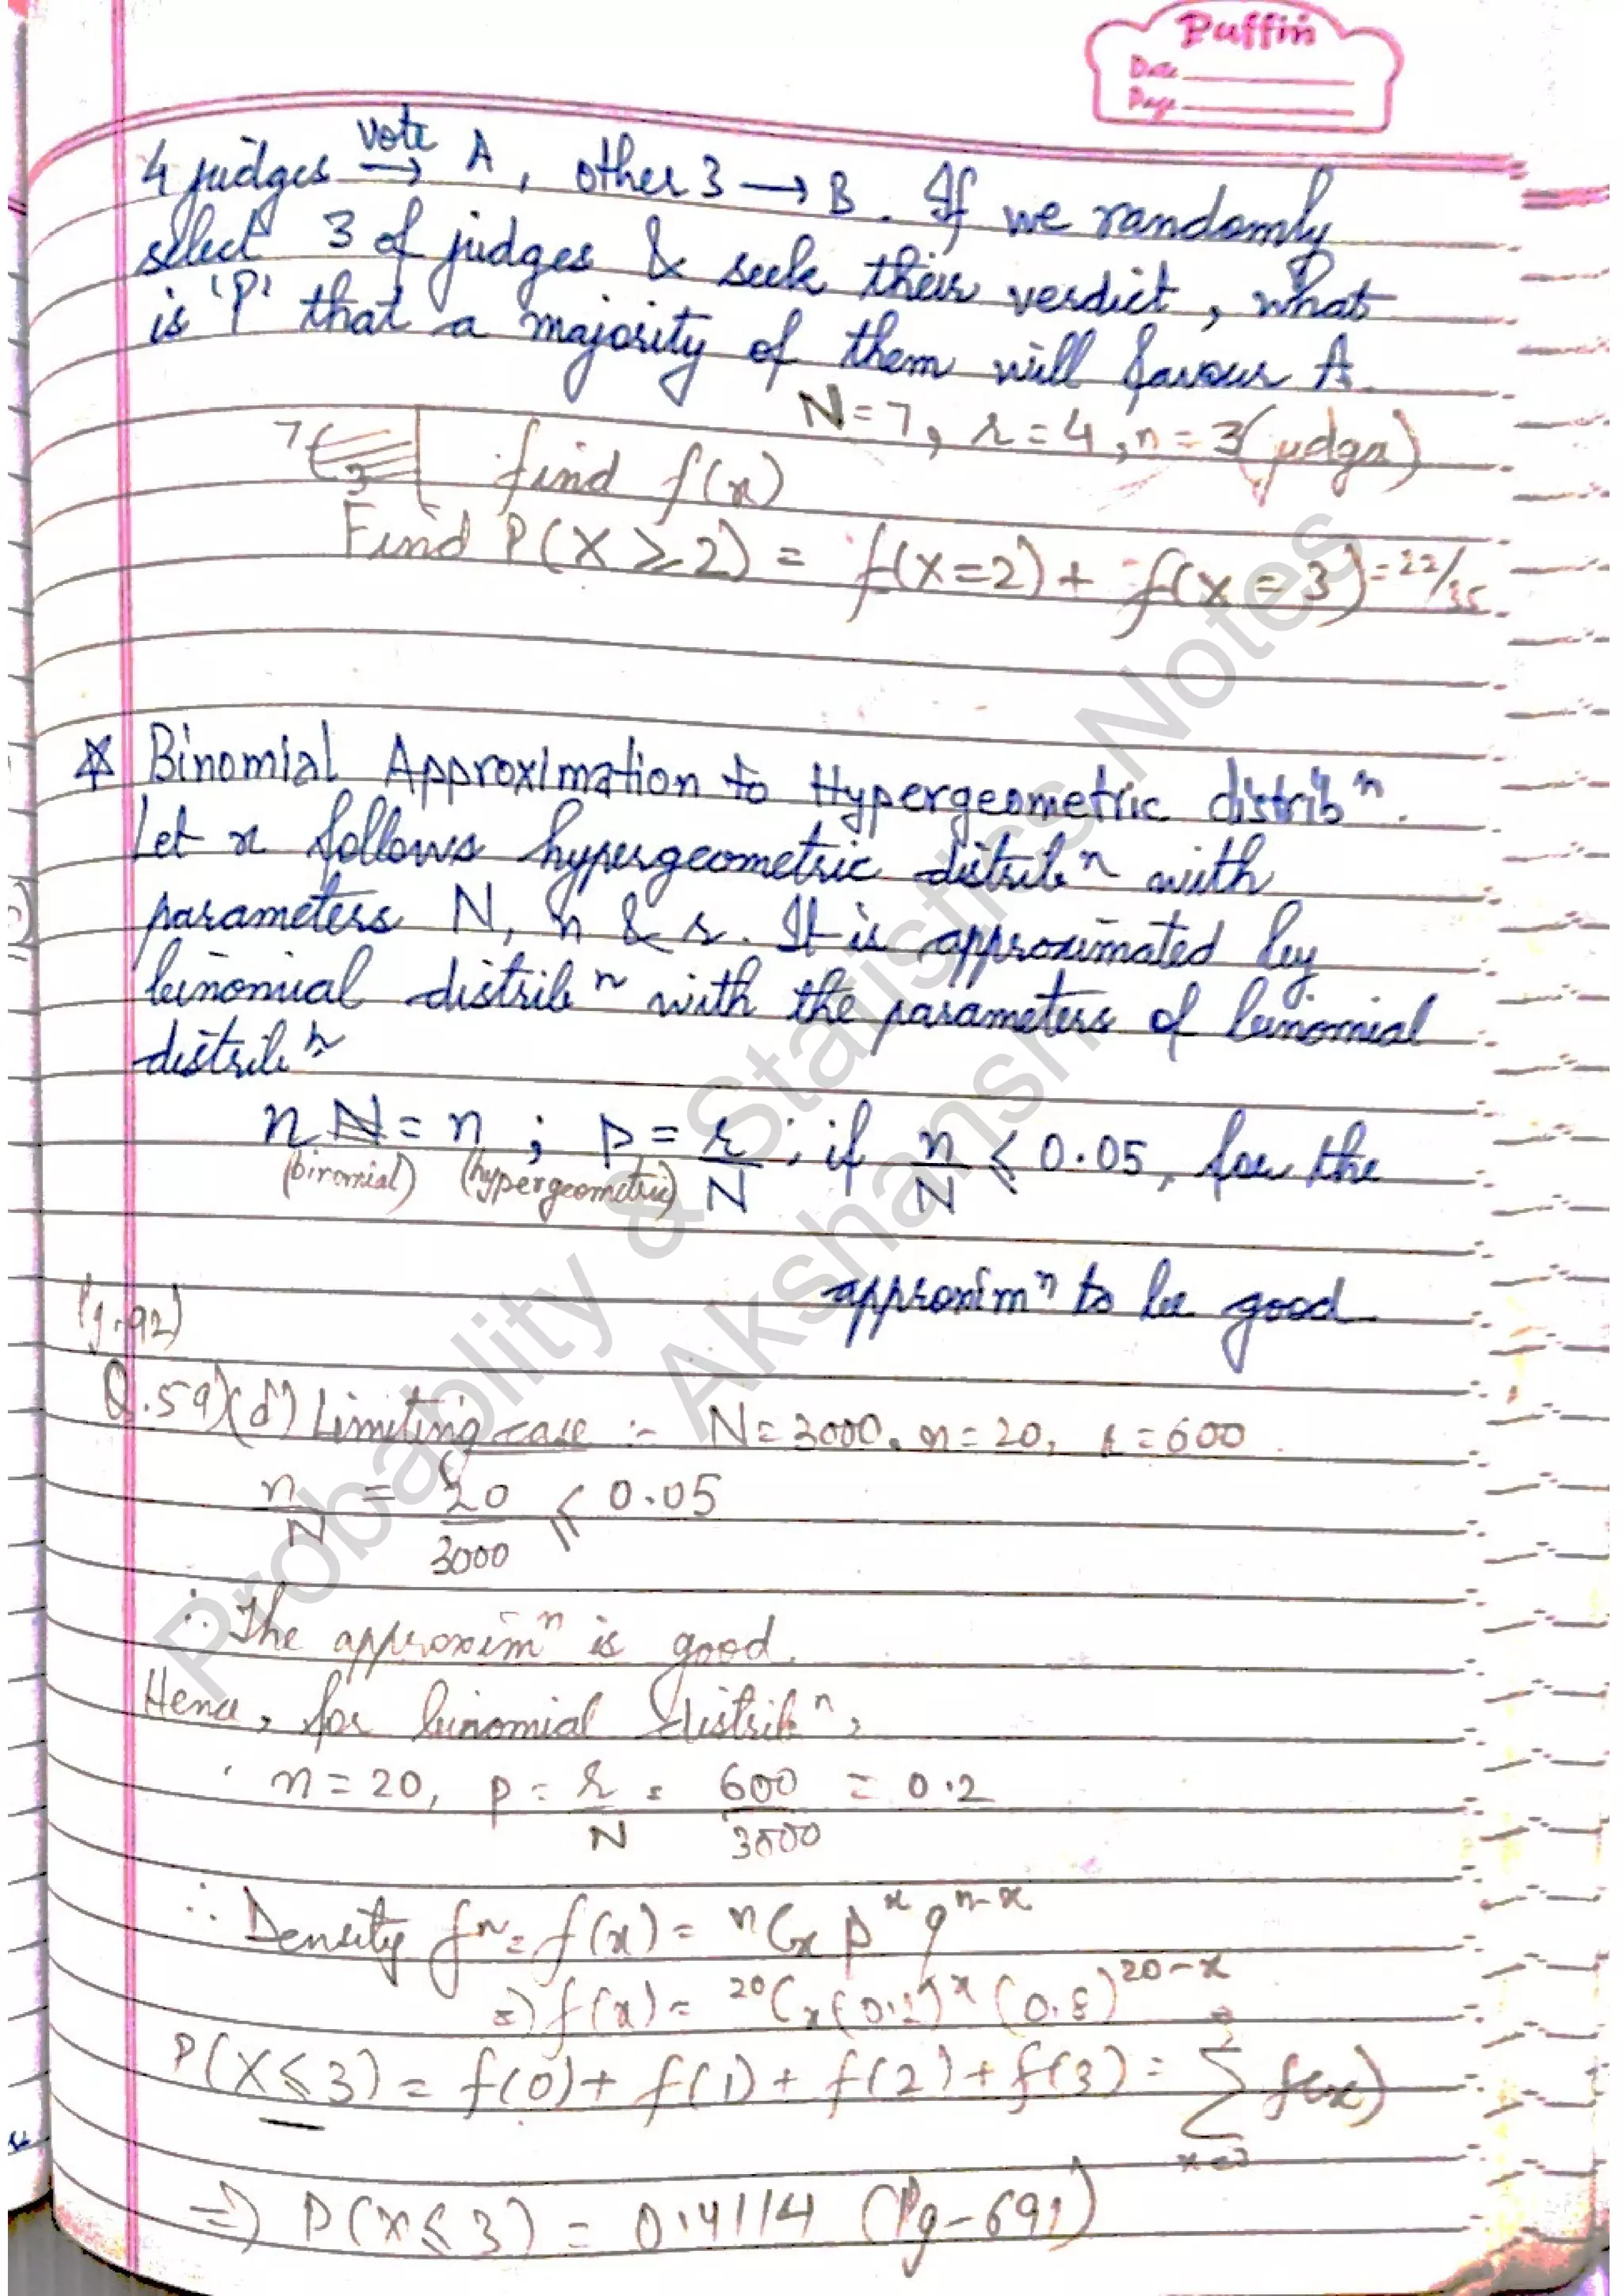 Puffin
Date
Page
4 judges vote → A, other 3 → B. If we randomly
select 3 of judges & seek their verdict, what
is 'P' that a majority of them will favour A.
N=7, r=4, n=3 (judges)
find f(x)
Find P(X ≥ 2) = f(x=2) + f(x=3) = 22/35
☆ Binomial Approximation to Hypergeometric distribⁿ.
Let x follows hypergeometric distribⁿ with
parameters N, n & r. It is approximated by
binomial distribⁿ with the parameters of binomial
distribⁿ
n = n ; p = r/N ; if n/N ≤ 0.05, for the
(binomial) (hypergeometric)
approximⁿ to be good
Pg.92)
Q.59)(d) Limiting case :- N=3000, n=20, r=600
n/N = 20/3000 ≤ 0.05
∴ The approximⁿ is good.
Hence, for binomial distribⁿ,
n=20, p = r/N = 600/3000 = 0.2
∴ Density fⁿ = f(x) = ⁿCₓ pˣ qⁿ⁻ˣ
⇒ f(x) = ²⁰Cₓ (0.2)ˣ (0.8)²⁰⁻ˣ
P(X ≤ 3) = f(0) + f(1) + f(2) + f(3) = Σ f(x)
⇒ P(x ≤ 3) = 0.4114 (Pg-691)
Probability & Statistics Notes
Akshansh